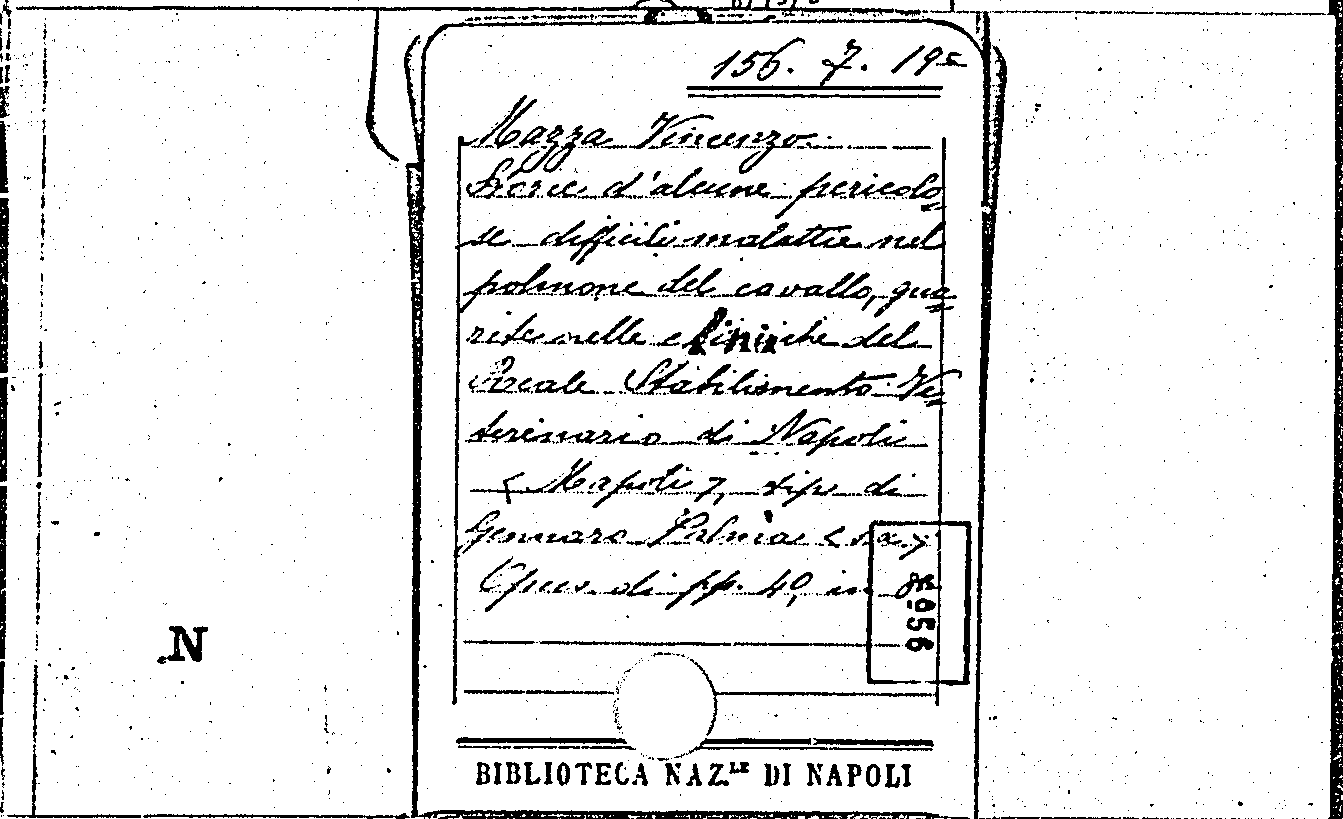 156. 7. 19c
Mazza Vincenzo.
Storie d'alcune pericolo=
se difficili malattie nel
polmone del cavallo, gua=
rite nelle cliniche del
Reale Stabilimento Ve=
terinario di Napoli
<Napoli>, tip. di
Gennaro Palma <s.a.>
Opus. di pp. 40, in 8º
8056
N
BIBLIOTECA NAZ.LE DI NAPOLI